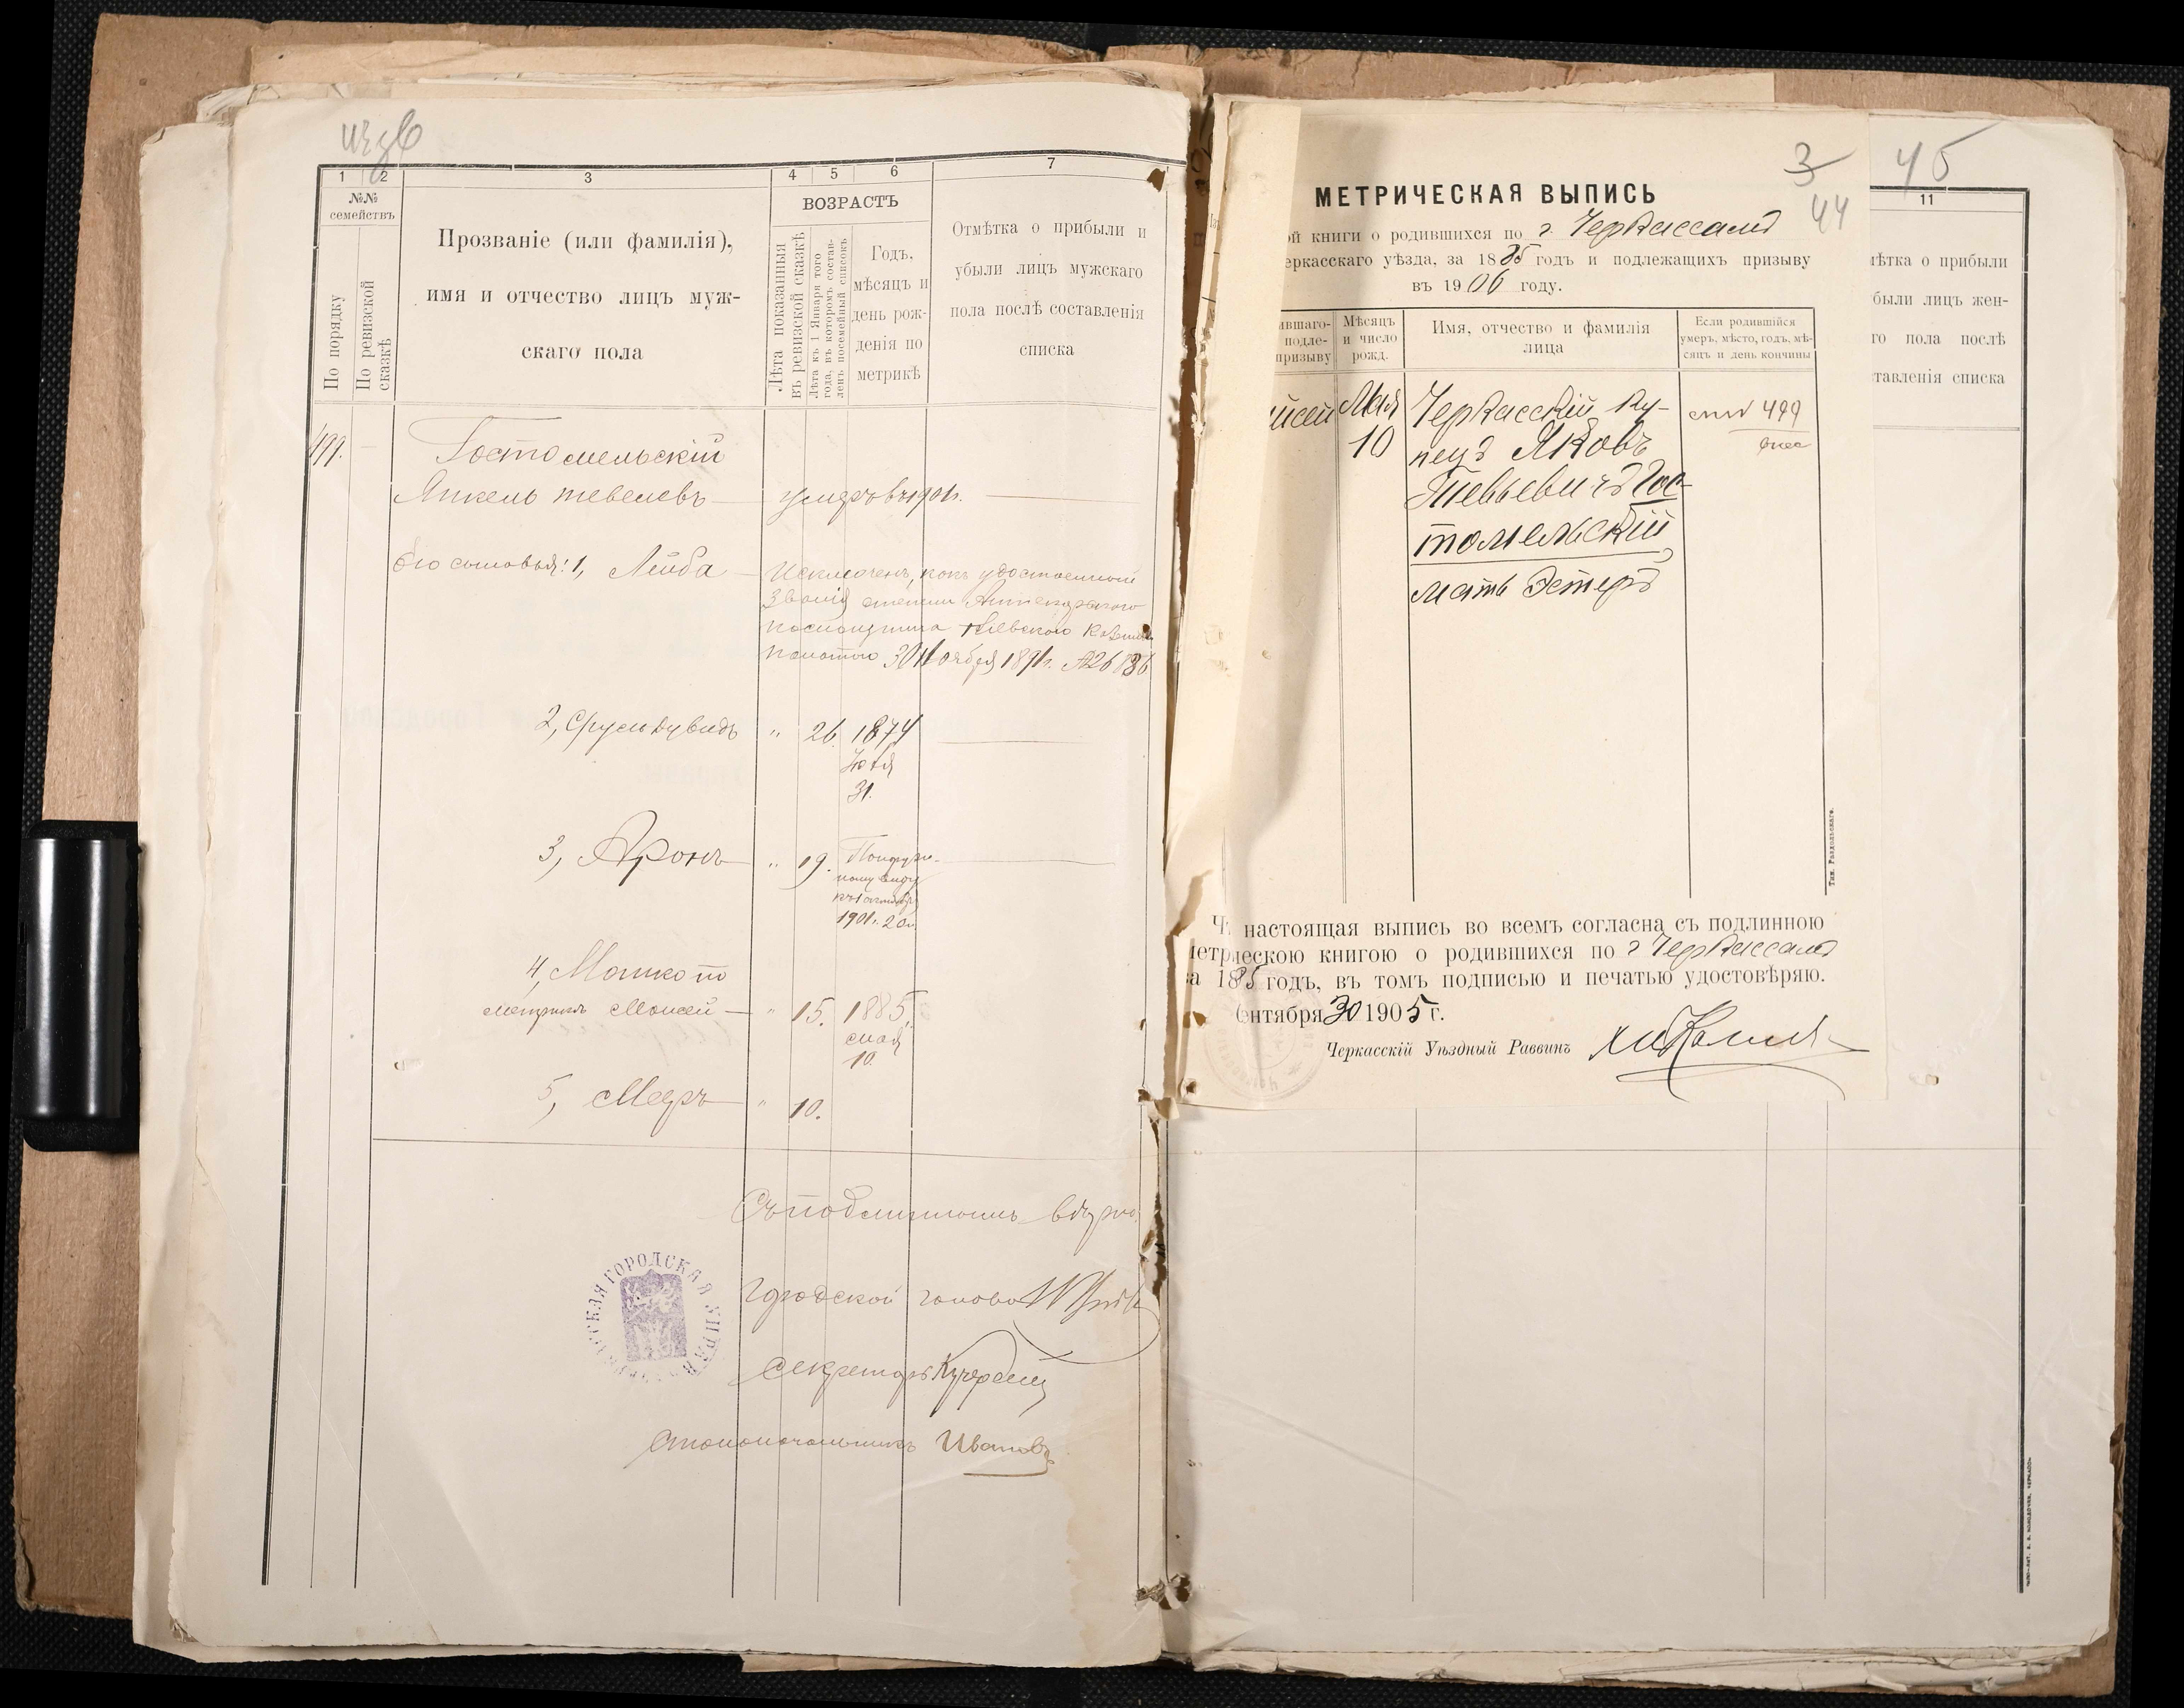 1
2
3
4
5
6
7
№№
семействъ
По порядку
По ревизской
сказкѣ
Прозваніе (или фамилія),
имя и отчество лицъ муж-
скаго пола
ВОЗРАСТЪ
Лѣта показанныя
въ ревизской сказкѣ
Лѣта къ 1 Января того
года, въ которомъ состав-
ленъ посемейный списокъ
Годъ,
мѣсяцъ и
день рож-
денія по
метрикѣ
Отмѣтка о прибыли и
убыли лицъ мужскаго
пола послѣ составленія
списка
499.
Гостомельскій
Янкель Тевелевъ умеръ въ 1901г.
Его сыновья: 1, Лейба Исключенъ, какъ удостоенный
званія степени Аптекарскаго
помощника Кіевскою Казенн.
палатою 30 Ноября 1891г.
2, Сруль Дувидъ " 26 1874
Іюля
31.
3, Аронъ " 19. По наруж-
ному виду
1901г. 20 л.
4, Мошко по
метрикѣ Моисей " 15. 1885,
мая
10.
5, Мееръ " 10.
Съ подлиннымъ вѣрно:
Городской голова
Секретарь
Столоначальникъ Ивановъ
ГОРОДСКАЯ УПРАВА
3
44
МЕТРИЧЕСКАЯ ВЫПИСЬ
ой книги о родившихся по г. Черкассамъ
еркасскаго уѣзда, за 1885 годъ и подлежащихъ призыву
въ 1906 году.
ившаго-
подле-
призыву
Мѣсяцъ
и число
рожд.
Имя, отчество и фамилія
лица
Если родившійся
умеръ, мѣсто, годъ, мѣ-
сяцъ и день кончины
исей
Мая
10
Черкасскій ку-
пецъ Яковъ
Тевьевичъ Гос-
томельскій,
мать Эстеръ
499
Тип. Раздольскаго.
Ч настоящая выпись во всемъ согласна съ подлинною
метрическою книгою о родившихся по г Черкассамъ
за 1885 годъ, въ томъ подписью и печатью удостовѣряю.
Сентября 30 1905 г.
Черкасскій Уѣздный Раввинъ
45
11
мѣтка о прибыли
были лицъ жен-
го пола послѣ
тавленія списка